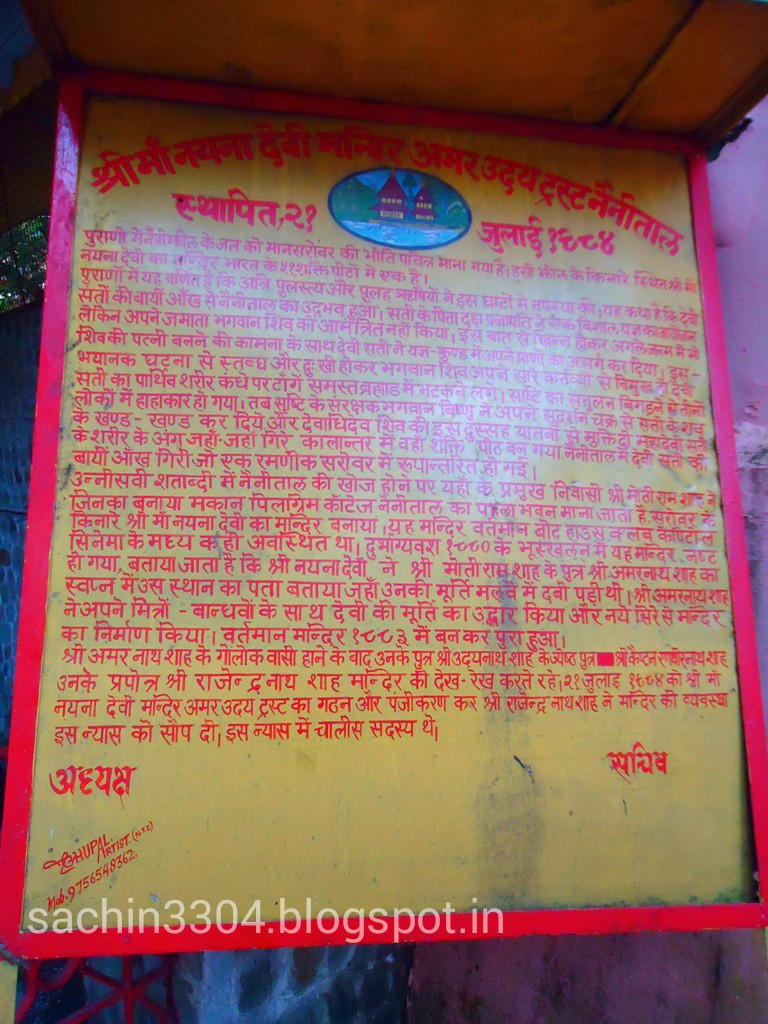 श्री माँ नयना देवी मन्दिर अमर उदय ट्रस्ट नैनीताल
स्थापित, २१ जुलाई १९८४
पुराणों में नैनी झील के जल को मानसरोवर की भाँति पवित्र माना गया है। इसी झील के किनारे स्थित श्री माँ
नयना देवी का मन्दिर भारत के ५१ शक्ति पीठों में एक है।
पुराणों में यह वर्णित है कि अत्रि पुलस्त्य और पुलह ऋषियों ने इस घाटी में तपस्या की। यह कथा है कि देवी
सती की बायीं आँख से नैनीताल का उद्रभव हुआ। सती के पिता दक्ष प्रजापति ने एक विशाल यज्ञ का आयोजन
लेकिन अपने जमाता भगवान शिव को आमंत्रित नहीं किया। इस बात से खिन्न होकर अगले जन्म में भी
शिव की पत्नी बनने की कामना के साथ देवी सती ने यज्ञ-कुण्ड में अपने प्राणों का उत्सर्ग कर दिया। इस-
भयानक घटना से स्तब्ध और दुःखी होकर भगवान शिव अपने सारे कर्तव्यों से विमुख हो देवी
सती का पार्थिव शरीर कंधे पर टाँगे समस्त ब्रह्माड में भटकने लगे। सृष्टि का संतुलन बिगड़ने से तीनों
लोकों में हाहाकार हो गया। तब सृष्टि के संरक्षक भगवान विष्णु ने अपने सुदर्शन चक्र से सती के शव
के खण्ड-खण्ड कर दिये और देवाधिदेव शिव की इस दुस्सह यातना से मुक्ति दी महादेवी सती
के शरीर के अंग जहाँ-जहाँ गिरे, कालान्तर में वहीं शक्ति पीठ बन गये नैनीताल में देवी सती की
बायीं आँख गिरी जो एक रमणीक सरोवर में रूपान्तरित हो गई।
उन्नीसवीं शताब्दी में नैनीताल की खोज होने पर यहाँ के प्रमुख निवासी श्री मोती राम शाह ने
जिनका बनाया मकान पिलग्रिम कॉटेज नैनीताल का पहला भवन माना जाता है, सरोवर के
किनारे श्री माँ नयना देवी का मन्दिर बनाया। यह मन्दिर वर्तमान बोट हाउस क्लब कैपिटोल
सिनेमा के मध्य कहीं अवस्थित था। दुर्भाग्यवश १८८० के भूस्खलन में यह मन्दिर नष्ट
हो गया, बताया जाता है कि श्री नयना देवी ने श्री मोती राम शाह के पुत्र श्री अमरनाथ शाह को
स्वप्न में उस स्थान का पता बताया जहाँ उनकी मूर्ति मलवे में दबी पड़ी थी। श्री अमरनाथ शाह
ने अपने मित्रों - बान्धवों के साथ देवी की मूर्ति का उद्धार किया और नये सिरे से मन्दिर
का निर्माण किया। वर्तमान मन्दिर १८८३ में बनकर पुरा हुआ।
श्री अमर नाथ शाह के गोलोक वासी होने के बाद उनके पुत्र श्री उदयनाथ शाह के ज्येष्ठ पुत्र श्री कैप्टन शाह
उनके प्रपोत्र श्री राजेन्द्र नाथ शाह मन्दिर की देख-रेख करते रहे। २१ जुलाई १९८४ को श्री माँ
नयना देवी मन्दिर अमर उदय ट्रस्ट का गठन और पंजीकरण कर श्री राजेन्द्र नाथ शाह ने मन्दिर की व्यवस्था
इस न्यास को सौंप दी, इस न्यास में चालीस सदस्य थे।
अध्यक्ष
सचिव
BHUPAL
ARTIST. (N.T.L)
Mob. 9756548362.
sachin3304.blogspot.in